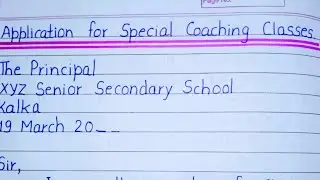 Application for Special Coaching Classes
The Principal
XYZ Senior Secondary School
Kalka
19 March 20__
Sir,